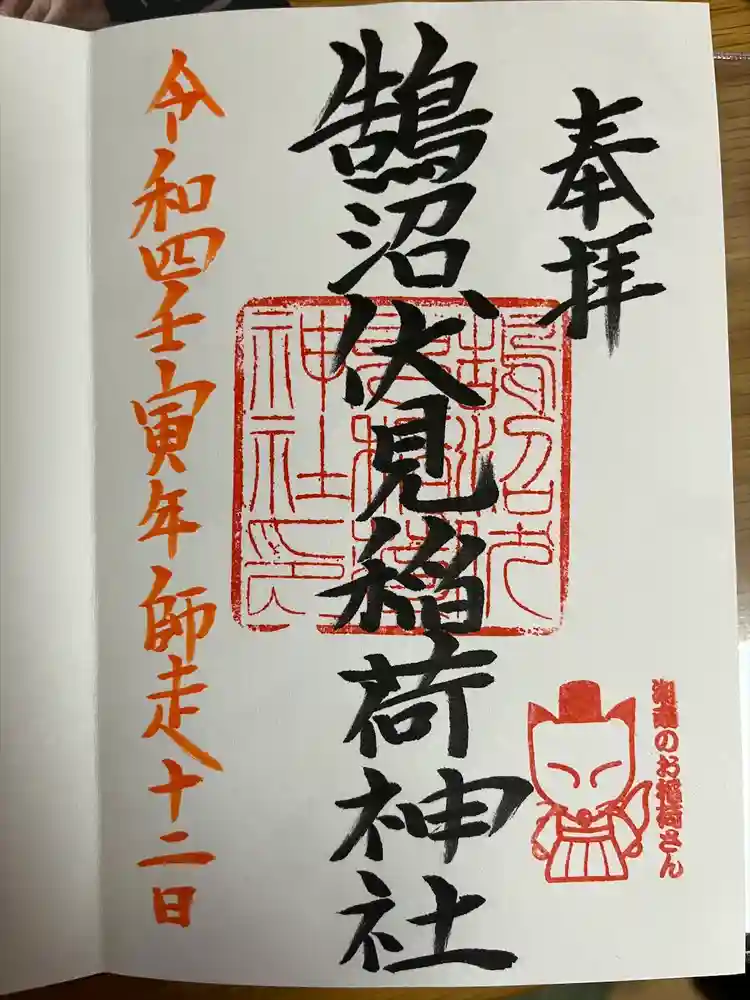 奉拝
鵠沼伏見稲荷神社
令和四壬寅年師走十二日
鵠沼伏見稲荷神社印
湘南のお稲荷さん